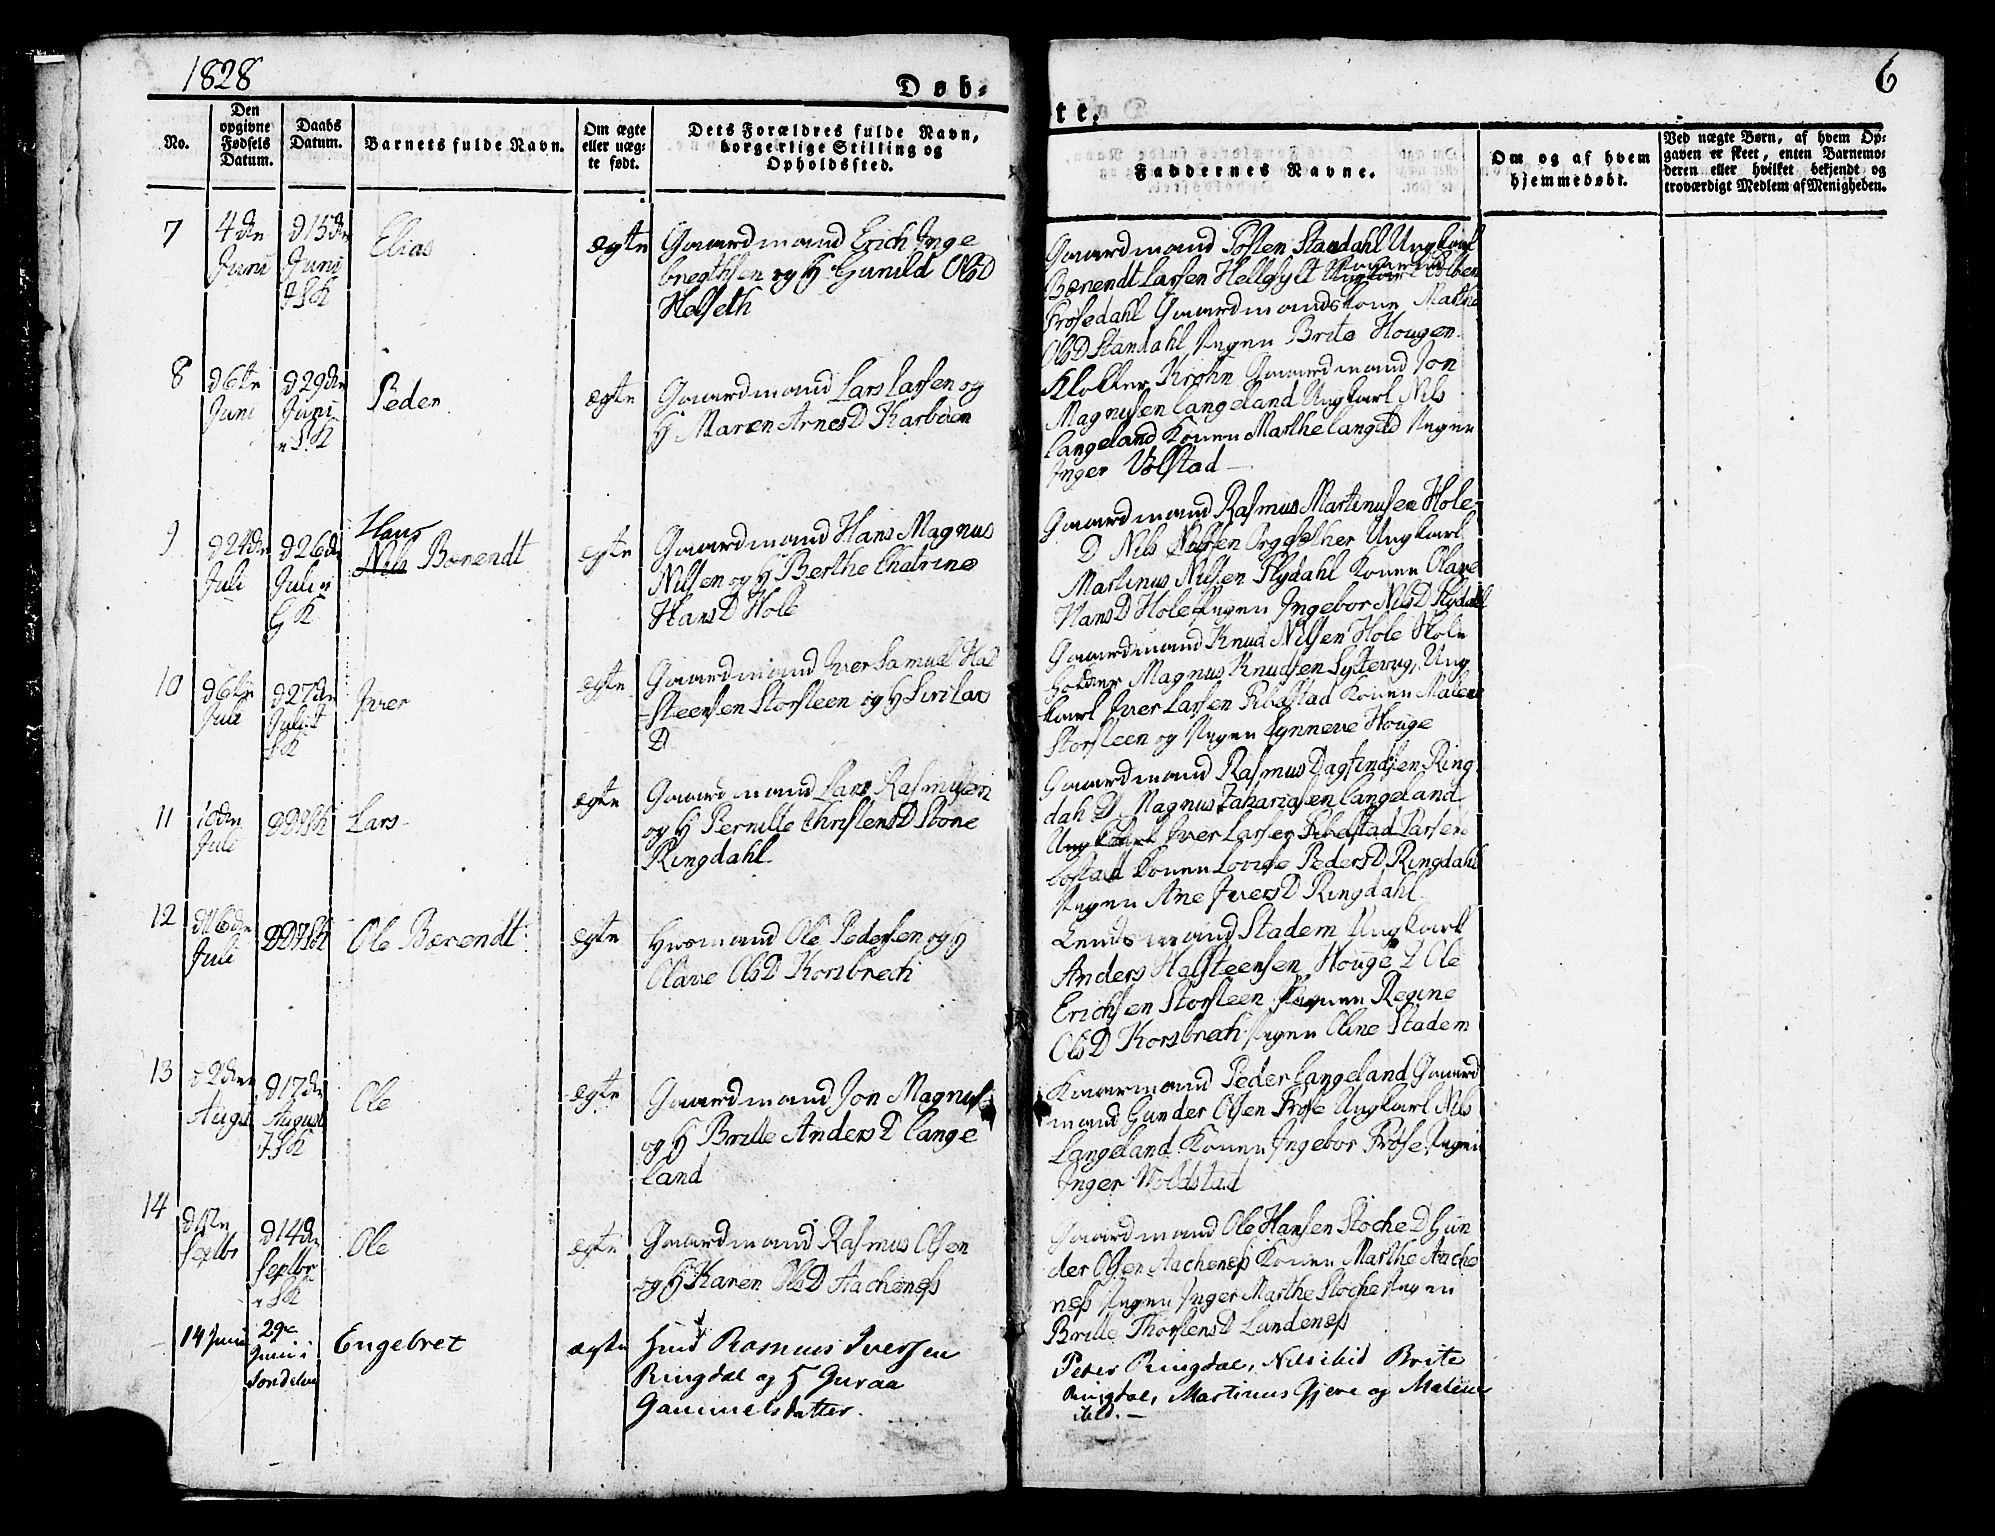 1828
Døb-
te.
6
No.
Den
opgivne
Fødsels
Datum.
Daabs
Datum.
Barnets fulde Navn.
Om ægte
eller uæg-
te født.
Dets Forældres fulde Navn,
borgerlige Stilling og
Opholdssted.
Faddernes Navne.
Om og af hvem
hjemmedøbt.
Ved uægte Børn, af hvem Op-
gaven er skeet, enten Barnemo-
deren eller hvilket bekjendt og
troværdigt Medlem af Menigheden.
7
4de
Juni
d 15de
Juni
Elias
ægte
Gaardmand Erich Inge
bregthsen og H Gunild OlsD
Helseth
Gaardmand Posten Standahl Ungkarl
Bærendt Larsen Hellesylt
Frøsedahl Gaardmandskone Marthe
OlsD Standahl Pigen Brite Hougen
8
d 6te
Juni
d 29de
Juni
i S.K
Peder
ægte
Gaardmand Lars Larsen og
H Maren ArnesD Karboen
Klokker Krohn Gaardmand Jon
Magnussen Langeland Ungkarl Nils
Langeland Konen Marthe Pigen
Inger Volstad
9
d 24de
Juli
d 26de
Juli i
G K
Hans
Nils Bærendt
ægte
Gaardmand Hans Magnus
Nilsen og H Berthe Chatrine
HansD Hole
Gaardmand Rasmus Martinusen Hole
D Nils Ungkarl
Martinus Nilsen Flydahl Konen Olave
HansD Hole Pigen Ingebor NilsD Flydahl
10
d 6te
Juli
d 27de
Juli i
SK
Iver
ægte
Gaardmand Iver Samuel Hal
steensen Storsteen og H Siri Lars
D
Gaardmand Knud Nilsen Hole Skole
holder Magnus Knudsen Ung
karl Iver Larsen Ribstad Konen Malene
Storsteen og Pigen Synneve Houge
11
10de
Juli
D D i SK
Lars
ægte
Gaardmand Lars Rasmusen
og H Pernille ChristensD Stone
Ringdahl
Gaardmand Rasmus Dagfindsen Ring
dahl D Magnus Zakariasen Langeland
Ungkarl Iver Larsen Ribstad Larsen
Konen Lovise PedersD Ringdahl
Pigen Ane IversD Ringdahl
12
d 16de
Juli
D D i SK
Ole Bærendt
ægte
Huusmand Ole Pedersen og H
Olave OlsD Korsbrech
Lendsmand Stadem Ungkarl
Anders Halsteensen Houge D Ole
Erichsen Storsteen Regine
OlsD Korsbrech Pigen Oline Stadem
13
d 2den
Augst
d 17de
August
i SK
Ole
ægte
Gaardmand Jon Magnus
og H Britte AndersD Lange
land
Kaarmand Peder Langeland Gaard
mand Gunder Olsen Frøse Ungkarl Nils
Langeland Konen Ingebor Frøse Pigen
Inger Woldstad
14
Septbr
d 14de
Septbr
i SK
Ole
ægte
Gaardmand Rasmus Olsen
og H Karen OlsD Aachenes
Gaardmand Ole Hansen Stoche D Gun
der Olsen Aachenes Konen Marthe Aache
nes Pigen Inger Marthe Stoche Pigen
Britte ThorstensD Lundenes
14 Juni
29de
Juni i
Søndelve
Engebret
ægte
Huus Rasmus Iversen
Ringdal og H Guraa
Gammelsdatter.
Peter Ringdal, Nils ibid Brite
Ringdal, Martinus Gjere og Malene
ibid. —